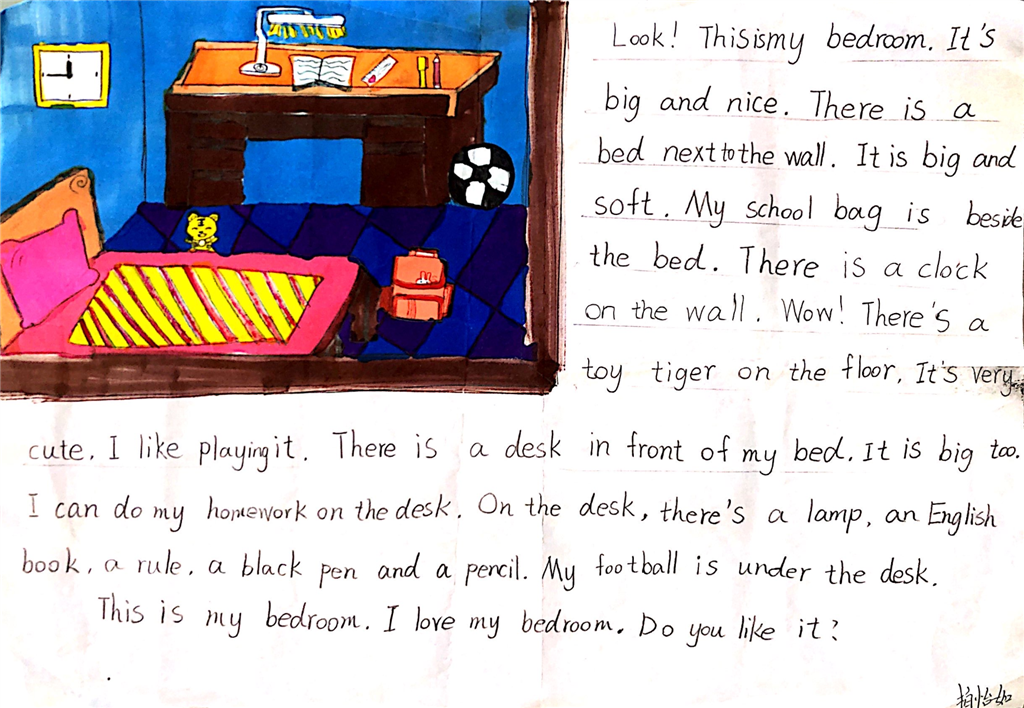 Look! This is my bedroom. It's
big and nice. There is a
bed next to the wall. It is big and
soft. My school bag is beside
the bed. There is a clock
on the wall. Wow! There's a
toy tiger on the floor. It's very
cute. I like playing it. There is a desk in front of my bed. It is big too.
I can do my homework on the desk. On the desk, there's a lamp, an English
book, a rule, a black pen and a pencil. My football is under the desk.
This is my bedroom. I love my bedroom. Do you like it?
怡如